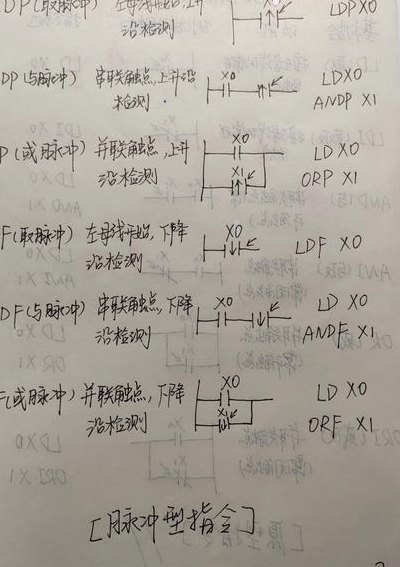 DP(取脉冲) 左母线开始,上升 LDP X0
沿检测
DP(与脉冲) 串联触点,上升沿 X0 LD X0
检测 ANDP X1
P(或脉冲) 并联触点,上升 X0 LD X0
沿检测 X1 ORP X1
F(取脉冲) 左母线开始,下降 X0 LDF X0
沿检测
DF(与脉冲) 串联触点,下降 X0 LD X0
沿检测 ANDF X1
(或脉冲) 并联触点,下降 X0 LD X0
沿检测 X1 ORF X1
[脉冲型指令]